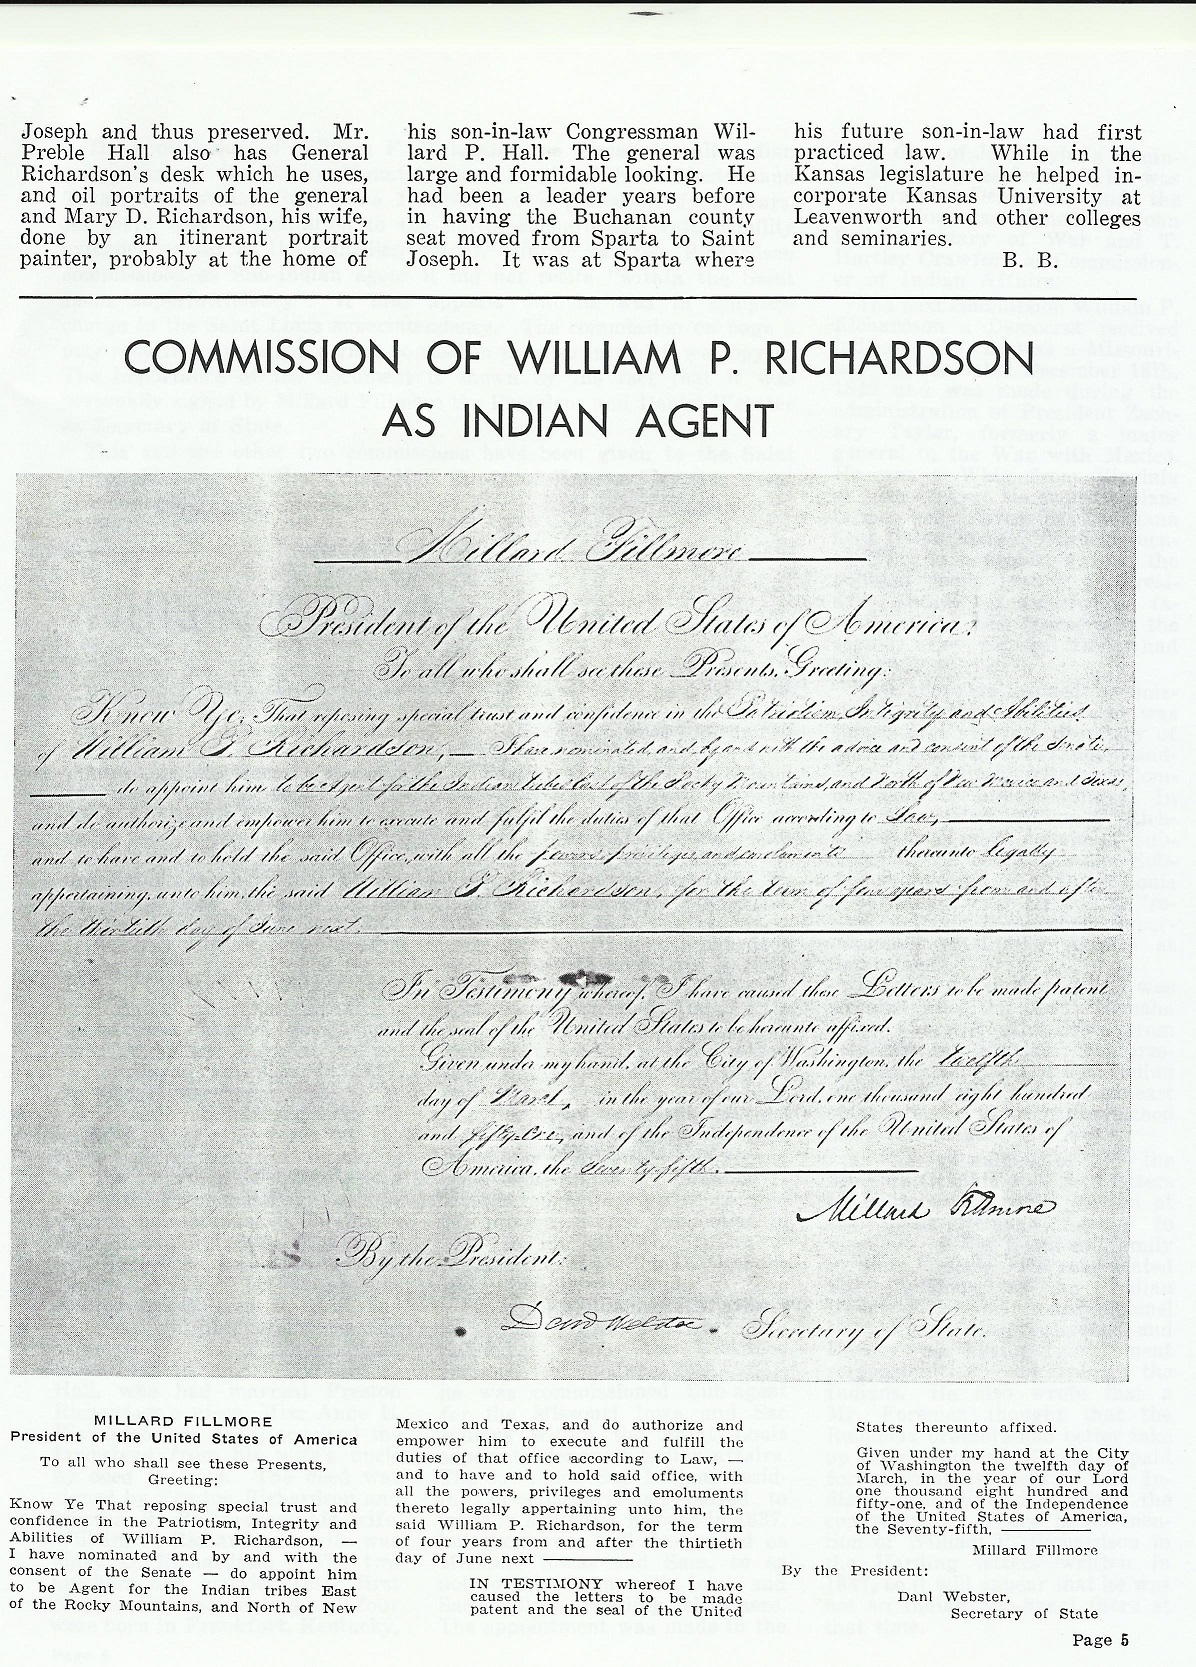 Joseph and thus preserved. Mr.
Preble Hall also has General
Richardson's desk which he uses,
and oil portraits of the general
and Mary D. Richardson, his wife,
done by an itinerant portrait
painter, probably at the home of
his son-in-law Congressman Wil-
lard P. Hall. The general was
large and formidable looking. He
had been a leader years before
in having the Buchanan county
seat moved from Sparta to Saint
Joseph. It was at Sparta where
his future son-in-law had first
practiced law. While in the
Kansas legislature he helped in-
corporate Kansas University at
Leavenworth and other colleges
and seminaries.
B. B.
COMMISSION OF WILLIAM P. RICHARDSON
AS INDIAN AGENT
Millard Fillmore
President of the United States of America:
To all who shall see these Presents, Greeting:
Know Ye, That reposing special trust and confidence in the Patriotism, Integrity and Abilities
of William P. Richardson, — I have nominated, and by and with the advice and consent of the Senate,
do appoint him to be Agent for the Indian tribes East of the Rocky Mountains, and North of New Mexico and Texas,
and do authorize and empower him to execute and fulfil the duties of that Office according to Law,
and to have and to hold the said Office, with all the powers, privileges and emoluments thereunto legally
appertaining, unto him, the said William P. Richardson, for the term of four years from and after
the thirtieth day of June next.
In Testimony whereof, I have caused these Letters to be made patent
and the seal of the United States to be hereunto affixed.
Given under my hand, at the City of Washington, the twelfth
day of March, in the year of our Lord, one thousand eight hundred
and fifty-one, and of the Independence of the United States of
America, the Seventy-fifth.
Millard Fillmore
By the President:
Danl Webster. Secretary of State.
MILLARD FILLMORE
President of the United States of America
To all who shall see these Presents,
Greeting:
Know Ye That reposing special trust and
confidence in the Patriotism, Integrity and
Abilities of William P. Richardson, —
I have nominated and by and with the
consent of the Senate — do appoint him
to be Agent for the Indian tribes East
of the Rocky Mountains, and North of New
Mexico and Texas, and do authorize and
empower him to execute and fulfill the
duties of that office according to Law, —
and to have and to hold said office, with
all the powers, privileges and emoluments
thereto legally appertaining unto him, the
said William P. Richardson, for the term
of four years from and after the thirtieth
day of June next ————
IN TESTIMONY whereof I have
caused the letters to be made
patent and the seal of the United
States thereunto affixed.
Given under my hand at the City
of Washington the twelfth day of
March, in the year of our Lord
one thousand eight hundred and
fifty-one, and of the Independence
of the United States of America,
the Seventy-fifth, ————
Millard Fillmore
By the President:
Danl Webster,
Secretary of State
Page 5